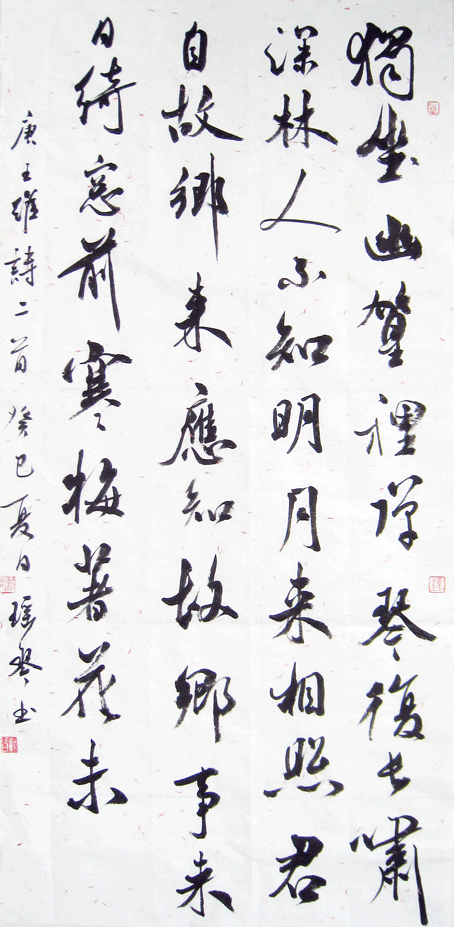 獨坐幽篁裡彈琴復長嘯
深林人不知明月来相照君
自故鄉来應知故鄉事来
日綺窓前寒梅著花未
唐王維詩二首癸巳夏日瑶琴书